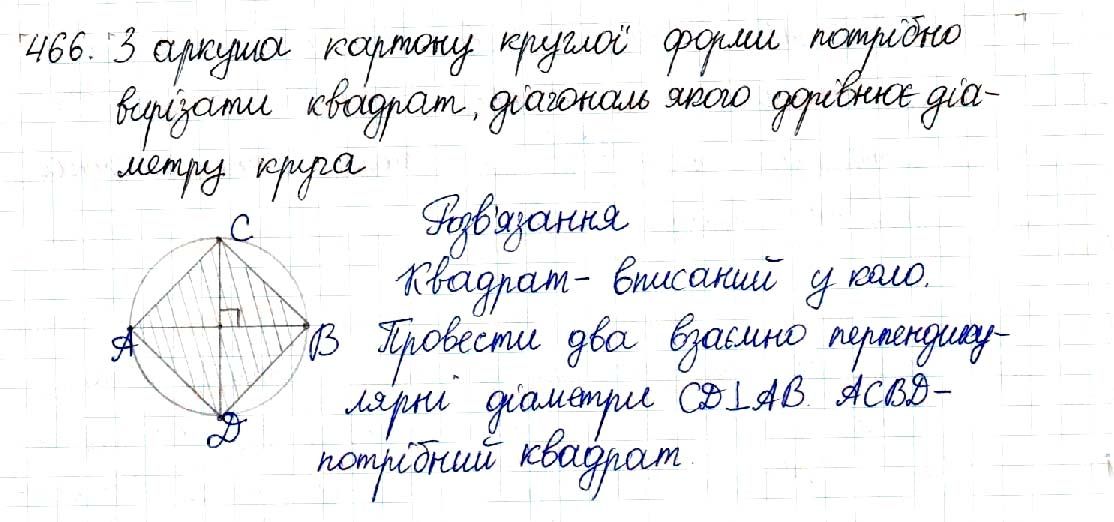 466. З аркуша картону круглої форми потрібно
вирізати квадрат, діагональ якого дорівнює діа-
метру круга
Розв'язання
Квадрат - вписаний у коло.
Провести два взаємно перпендику-
лярні діаметри CD⊥AB. ACBD -
потрібний квадрат
C
A
B
D